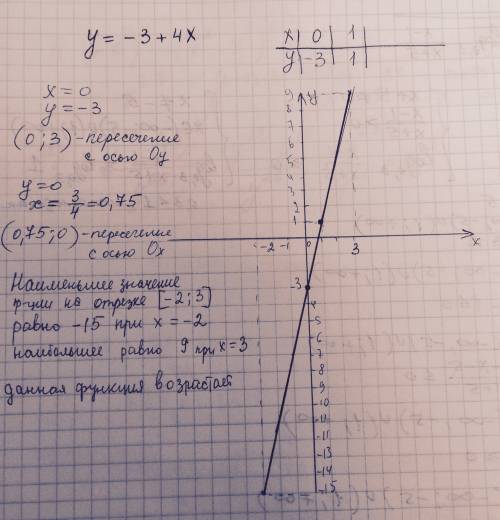 y = -3 + 4x
x 0 1
y -3 1
x = 0
y = -3
(0 ; 3) - пересечение
с осью Oy
y = 0
x = 3/4 = 0,75
(0,75; 0) - пересечение
с осью Ox
Наименьшее значение
ф-ции на отрезке [-2; 3]
равно -15 при x = -2
наибольшее равно 9 при x = 3
данная функция возрастает
y
9
8
7
6
5
4
3
2
1
-2 -1 0 3 x
-3
4
5
-6
-7
-8
-9
-10
-11
-11
-13
-14
-15